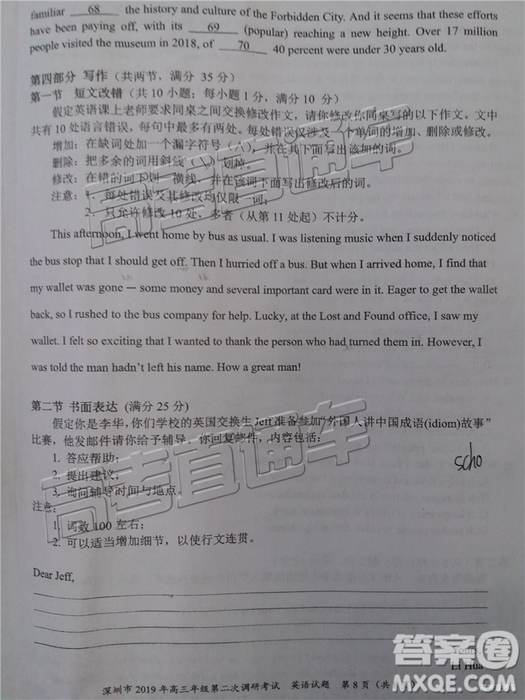 familiar 68 the history and culture of the Forbidden City. And it seems that these efforts
have been paying off, with its 69 (popular) reaching a new height. Over 17 million
people visited the museum in 2018, of 70 40 percent were under 30 years old.
第四部分 写作（共两节，满分 35 分）
第一节 短文改错（共 10 小题；每小题 1 分，满分 10 分）
假定英语课上老师要求同桌之间交换修改作文，请你修改你同桌写的以下作文。文中
共有 10 处语言错误，每句中最多有两处。每处错误仅涉及一个单词的增加、删除或修改。
增加：在缺词处加一个漏字符号（∧），并在其下面写出该加的词。
删除：把多余的词用斜线（\）划掉。
修改：在错的词下划一横线，并在该词下面写出修改后的词。
注意：1. 每处错误及其修改均仅限一词；
2. 只允许修改 10 处，多者（从第 11 处起）不计分。
This afternoon, I went home by bus as usual. I was listening music when I suddenly noticed
the bus stop that I should get off. Then I hurried off a bus. But when I arrived home, I find that
my wallet was gone — some money and several important card were in it. Eager to get the wallet
back, so I rushed to the bus company for help. Lucky, at the Lost and Found office, I saw my
wallet. I felt so exciting that I wanted to thank the person who had turned them in. However, I
was told the man hadn't left his name. How a great man!
第二节 书面表达（满分 25 分）
假定你是李华，你们学校的英国交换生 Jeff 准备参加“外国人讲中国成语(idiom)故事”
比赛，他发邮件请你给予辅导，你回复邮件，内容包括：
1. 答应帮助；
2. 提出建议；
3. 询问辅导时间与地点。
scho
注意：
1. 词数 100 左右；
2. 可以适当增加细节，以使行文连贯。
Dear Jeff,
Li Hua
深圳市 2019 年高三年级第二次调研考试 英语试题 第 8 页（共
高考直通车
高考直通车
答案圈